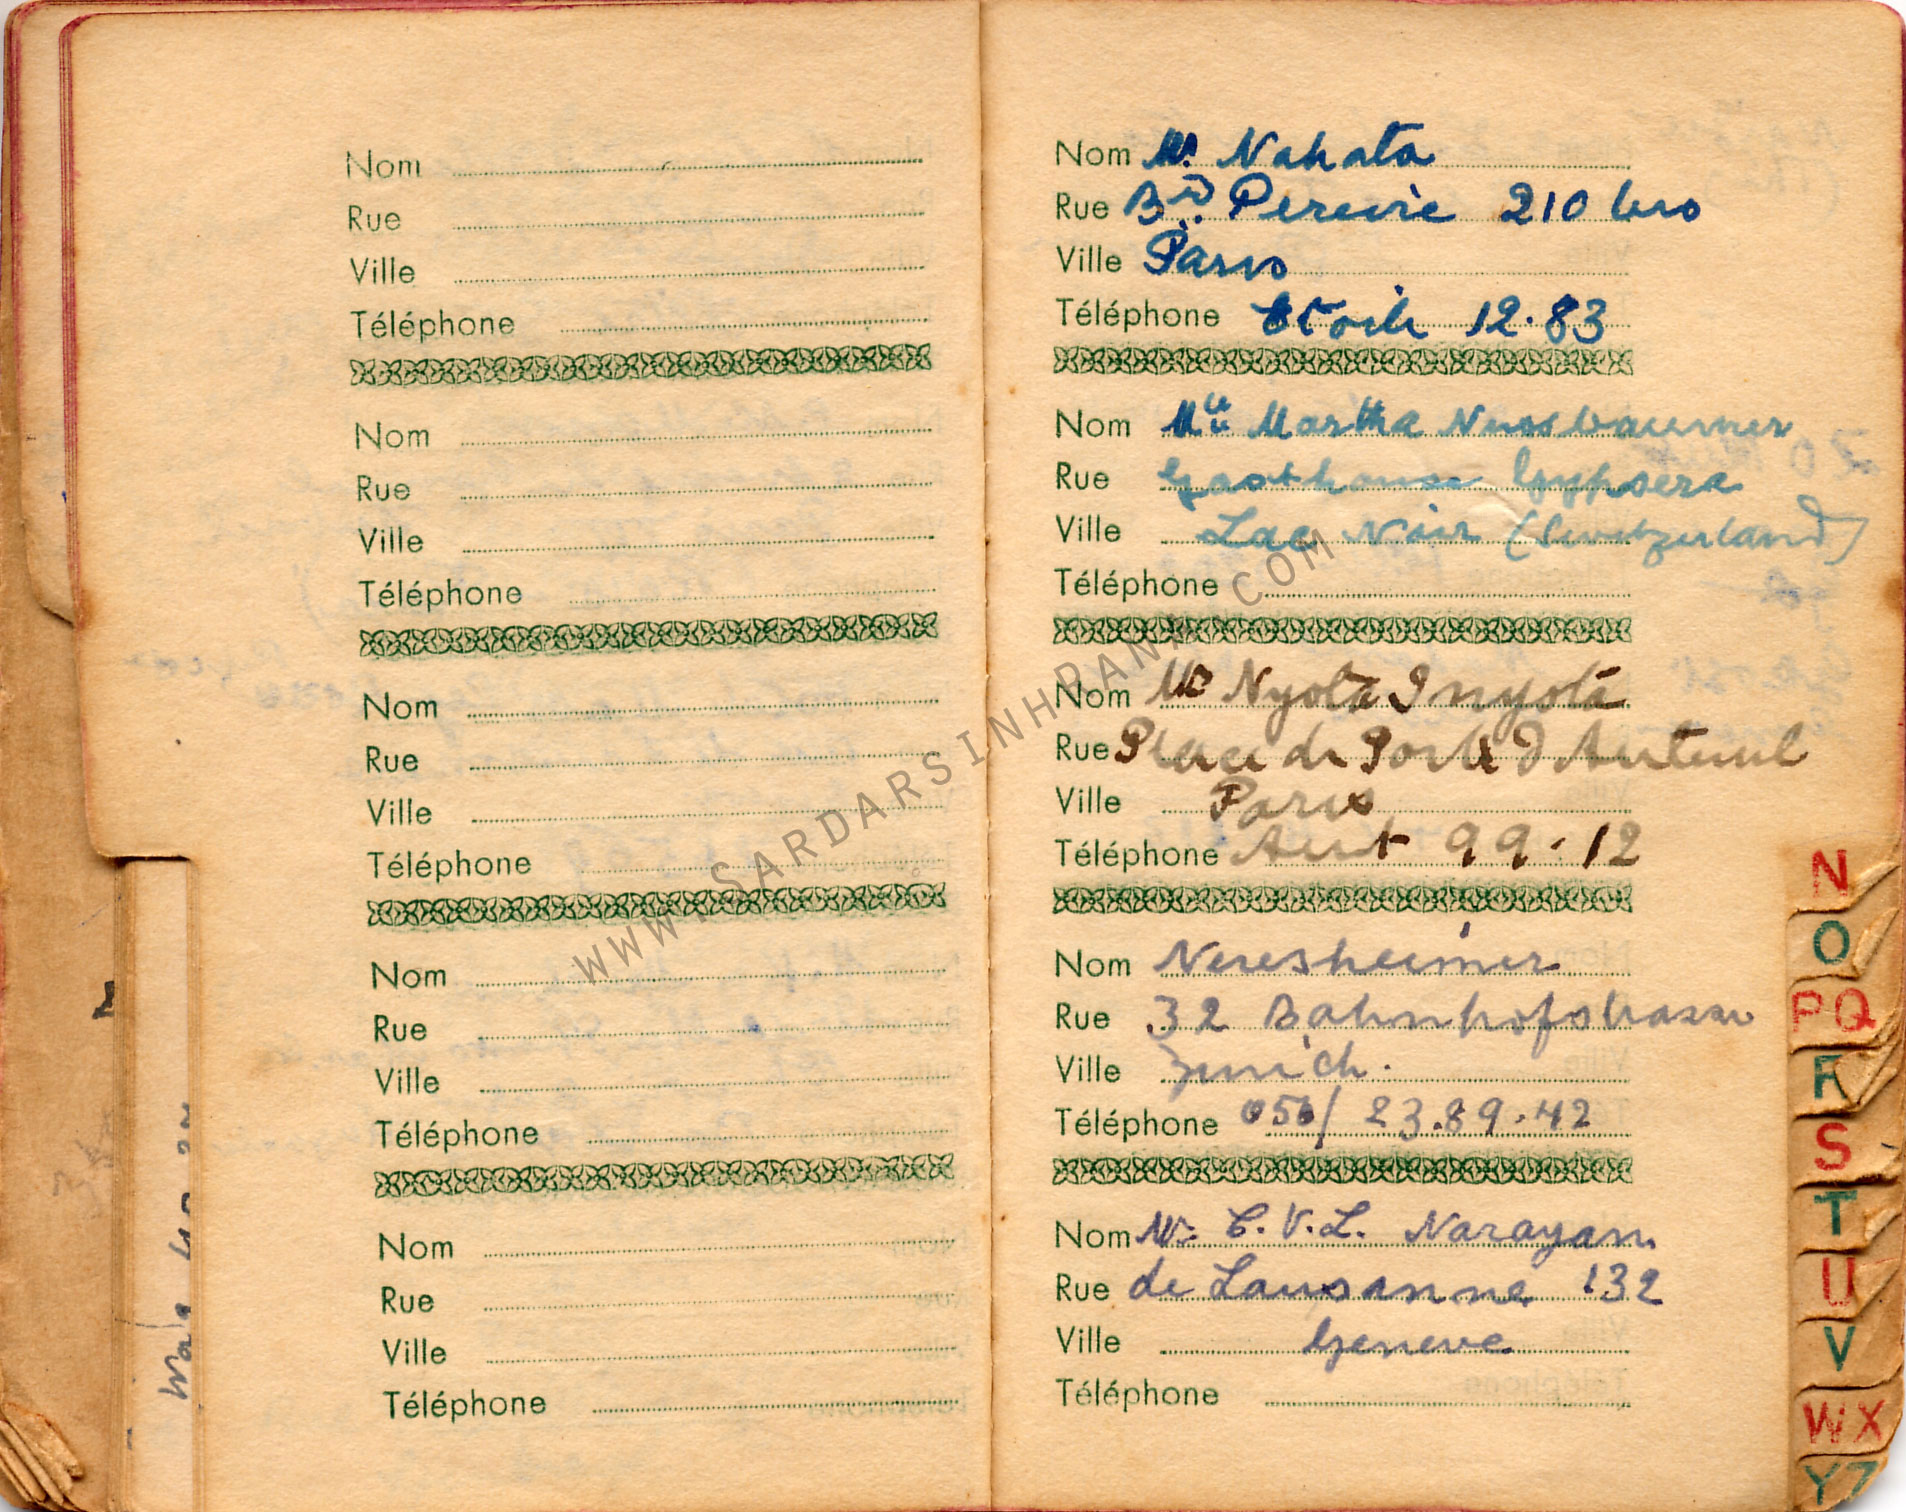 Nom
Rue
Ville
Téléphone
Nom
Rue
Ville
Téléphone
Nom
Rue
Ville
Téléphone
Nom
Rue
Ville
Téléphone
Nom
Rue
Ville
Téléphone
Nom Mr. Nahata
Rue Bd. Pereire 210 bis
Ville Paris
Téléphone Etoile 12.83
Nom Mlle Martha Nussbaumer
Rue Gasthaus Gypsera
Ville Lac Noir (Switzerland)
Téléphone
Nom Mr Nyota Inyoka
Rue Place de Porte D'Auteuil
Ville Paris
Téléphone Aut 99.12
Nom Neresheimer
Rue 32 Bahnhofstrasse
Ville Zurich.
Téléphone 23.89.42
Nom Mr C.V.L. Narayan
Rue de Lausanne 132
Ville Geneve
Téléphone
N
O
PQ
R
S
T
U
V
WX
YZ
WWW.SARDARSINHRANA.COM